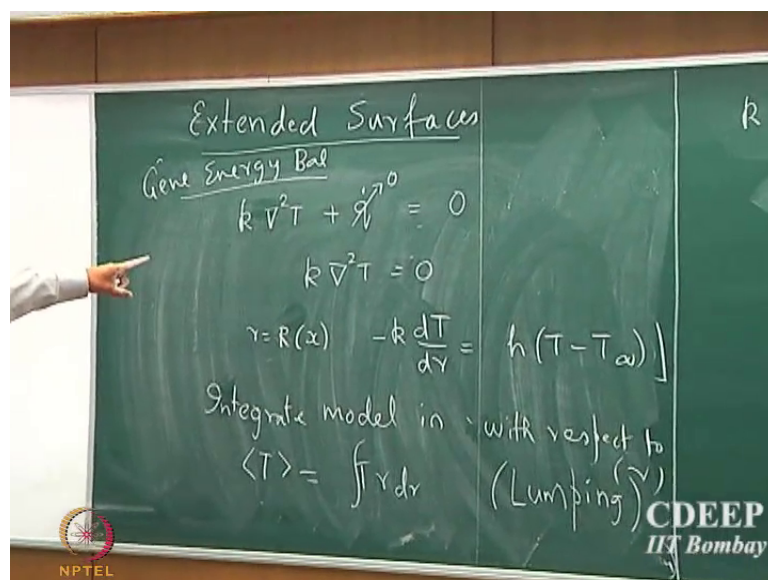 Extended Surfaces
Gene Energy Bal
k ∇²T + q̇ ↗ 0 = 0
k ∇²T = 0
r = R(x) -k dT/dr = h (T - T∞) ]
Integrate model in with respect to
(r)
⟨T⟩ = ∫ T r dr (Lumping)
k
CDEEP
IIT Bombay
NPTEL